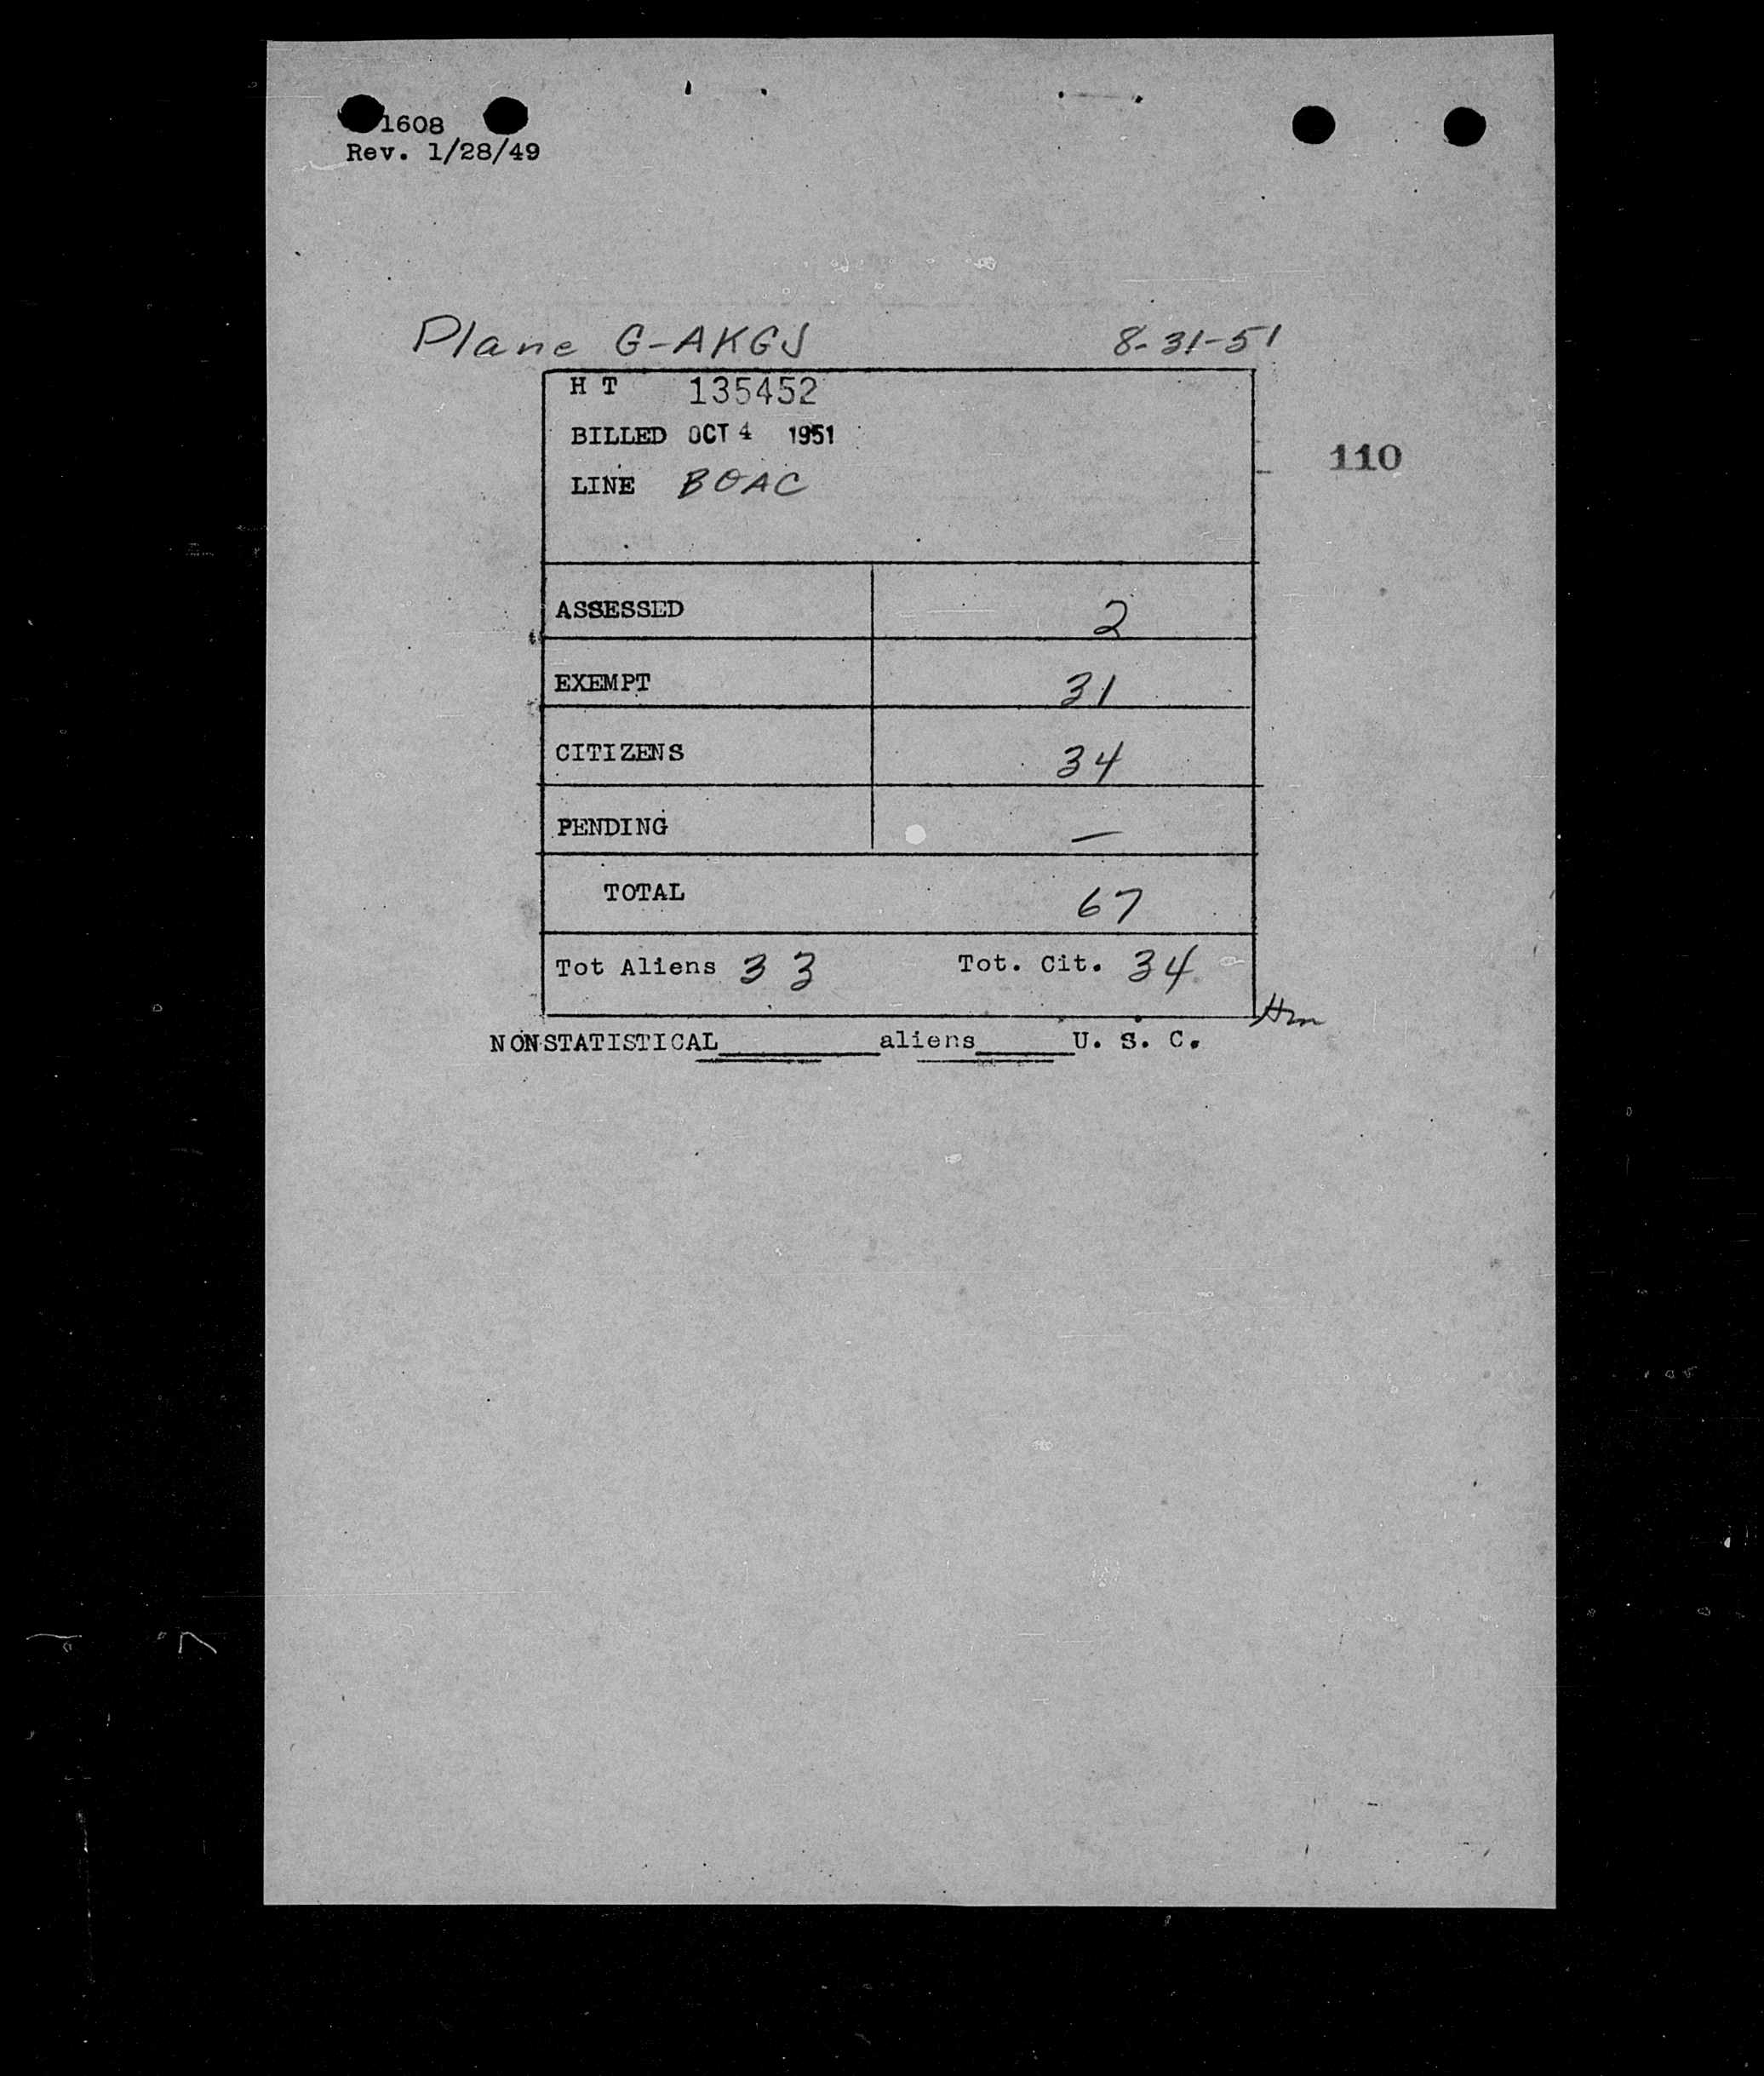 1608
Rev. 1/28/49
Plane G-AKGJ 8-31-51
H T 135452
BILLED OCT 4 1951
LINE BOAC
110
ASSESSED 2
EXEMPT 31
CITIZENS 34
PENDING —
TOTAL 67
Tot Aliens 33 Tot. Cit. 34
NONSTATISTICAL______aliens______U. S. C.